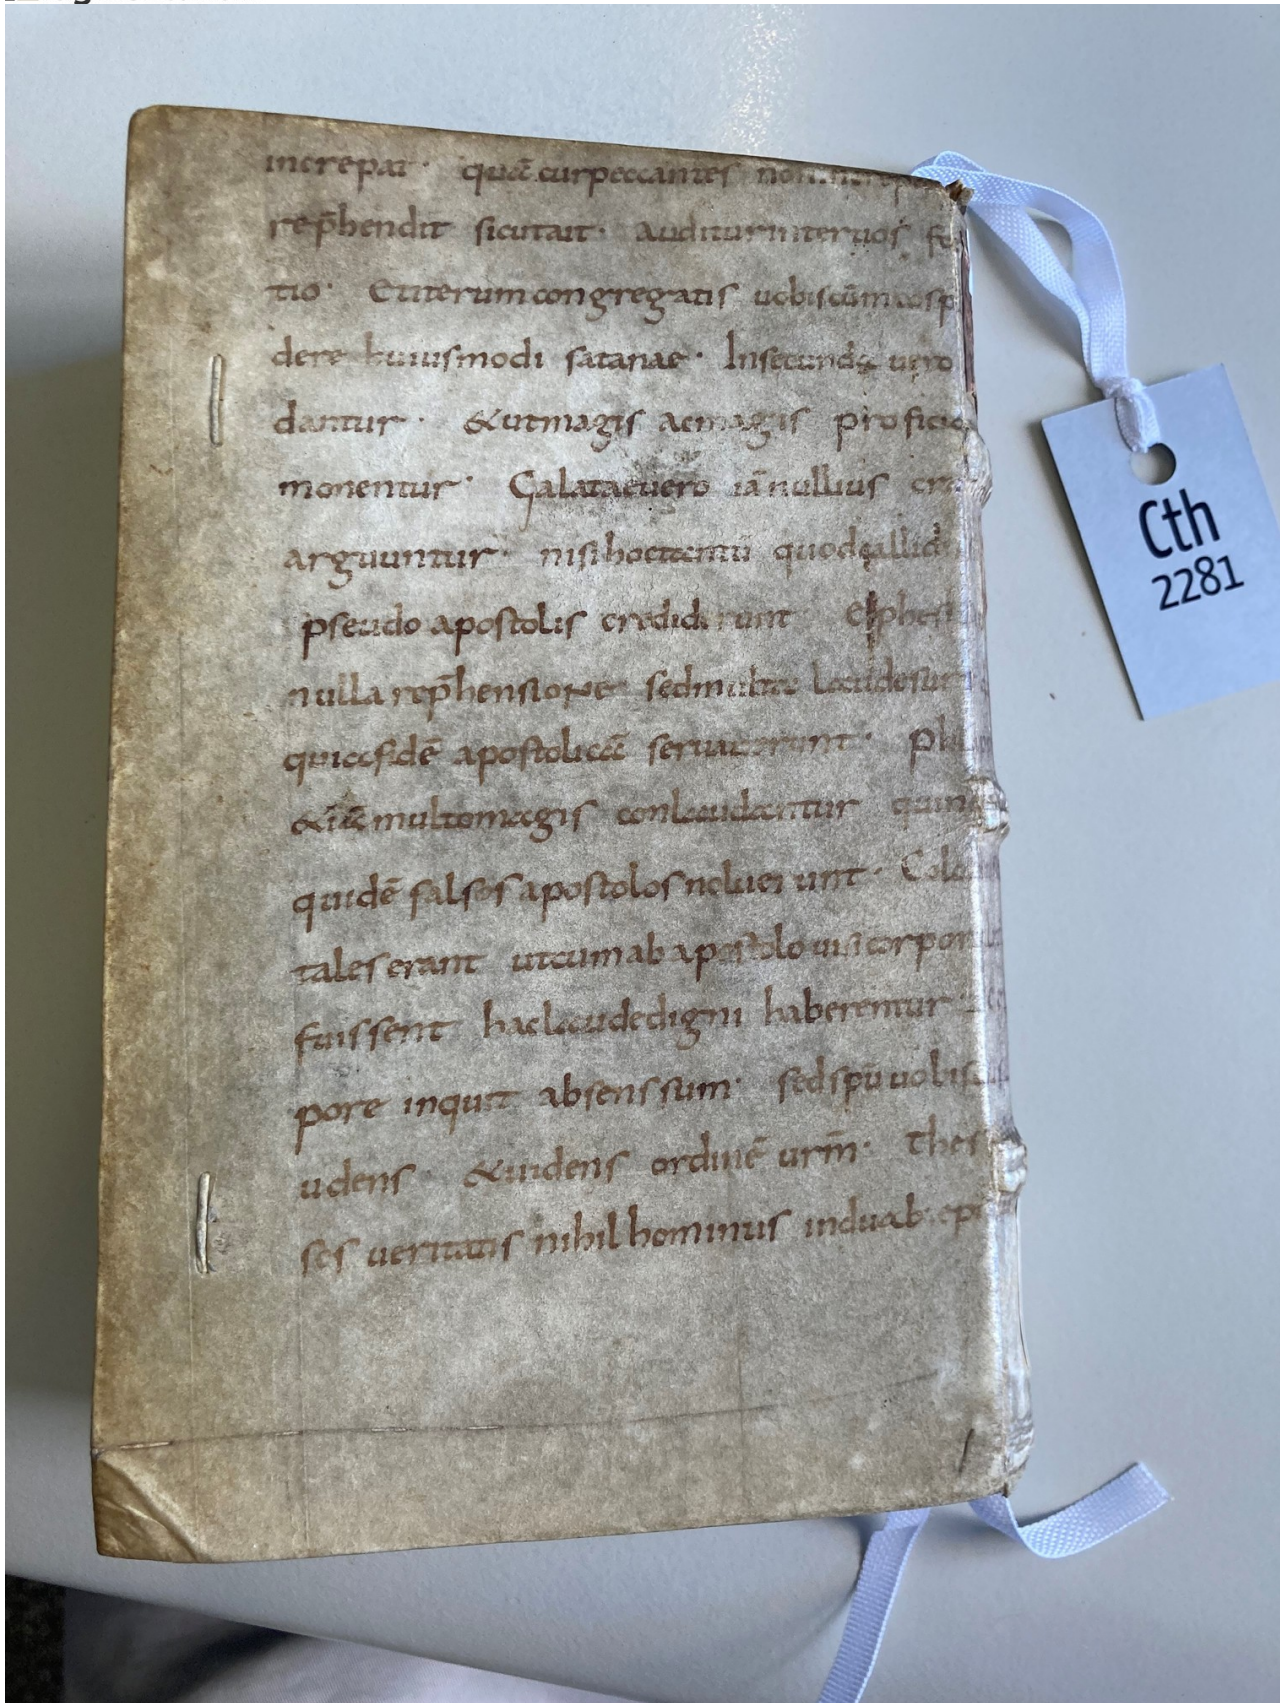 increpat · quā cur peccantes non increpa
rep̄hendit sicut ait · auditur inter uos fo
tio · Et iterum congregatis uobis cum
dere huiusmodi satanae · In secunda uero
dantur · & ut magis ac magis profici
monentur · Galatae uero iā nullius
arguuntur · nisi hoc tantū quod callid
pseudo apostolis crediderunt Ephesi
nulla rep̄hensione sed multa laude sunt
quia fidē apostolicā seruauerunt · Phi
& iā multo magis conlaudantur qui n
quidē falsos apostolos noluerunt · Colo
tales erant ut cum ab apostolo uisi corpor
fuissent hac laude digni haberentur
pore inquit absens sum · sed spū uobis
udens & uidens ordinē urm̄ · Thes
ses ueritatis nihilhominus in duab· ep
Cth
2281